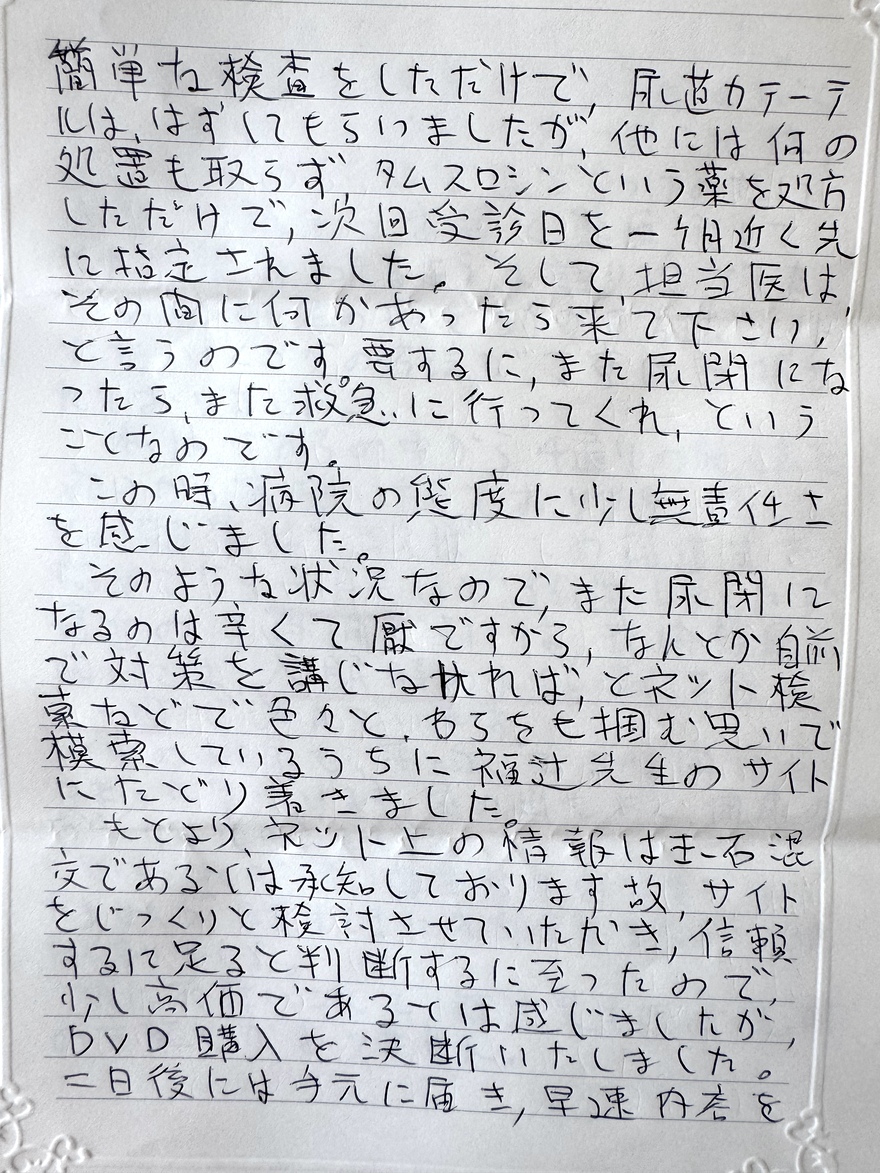 簡単な検査をしただけで、尿道カテーテ
ルは、はずしてもらいましたが、他には何の
処置も取らず、タムスロシンという薬を処方
しただけで、次回受診日を一ヶ月近く先
に指定されました。そして、担当医は
その間に何かあったら来て下さい、
と言うのです。要するに、また尿閉にな
ったら、また救急に行ってくれ、という
ことなのです。
この時、病院の態度に少し無責任さ
を感じました。
そのような状況なので、また尿閉に
なるのは辛くて厭ですから、なんとか自前
で対策を講じなければ、とネット検
索などで色々と、わらをも掴む思いで
模索しているうちに福辻先生のサイト
にたどり着きました。
もとより、ネット上の情報は玉石混
交であるとは承知しております故、サイト
をじっくりと検討させていただき、信頼
するに足ると判断するに至ったので、
少し高価であるとは感じましたが、
DVD購入を決断いたしました。
二日後には手元に届き、早速内容を